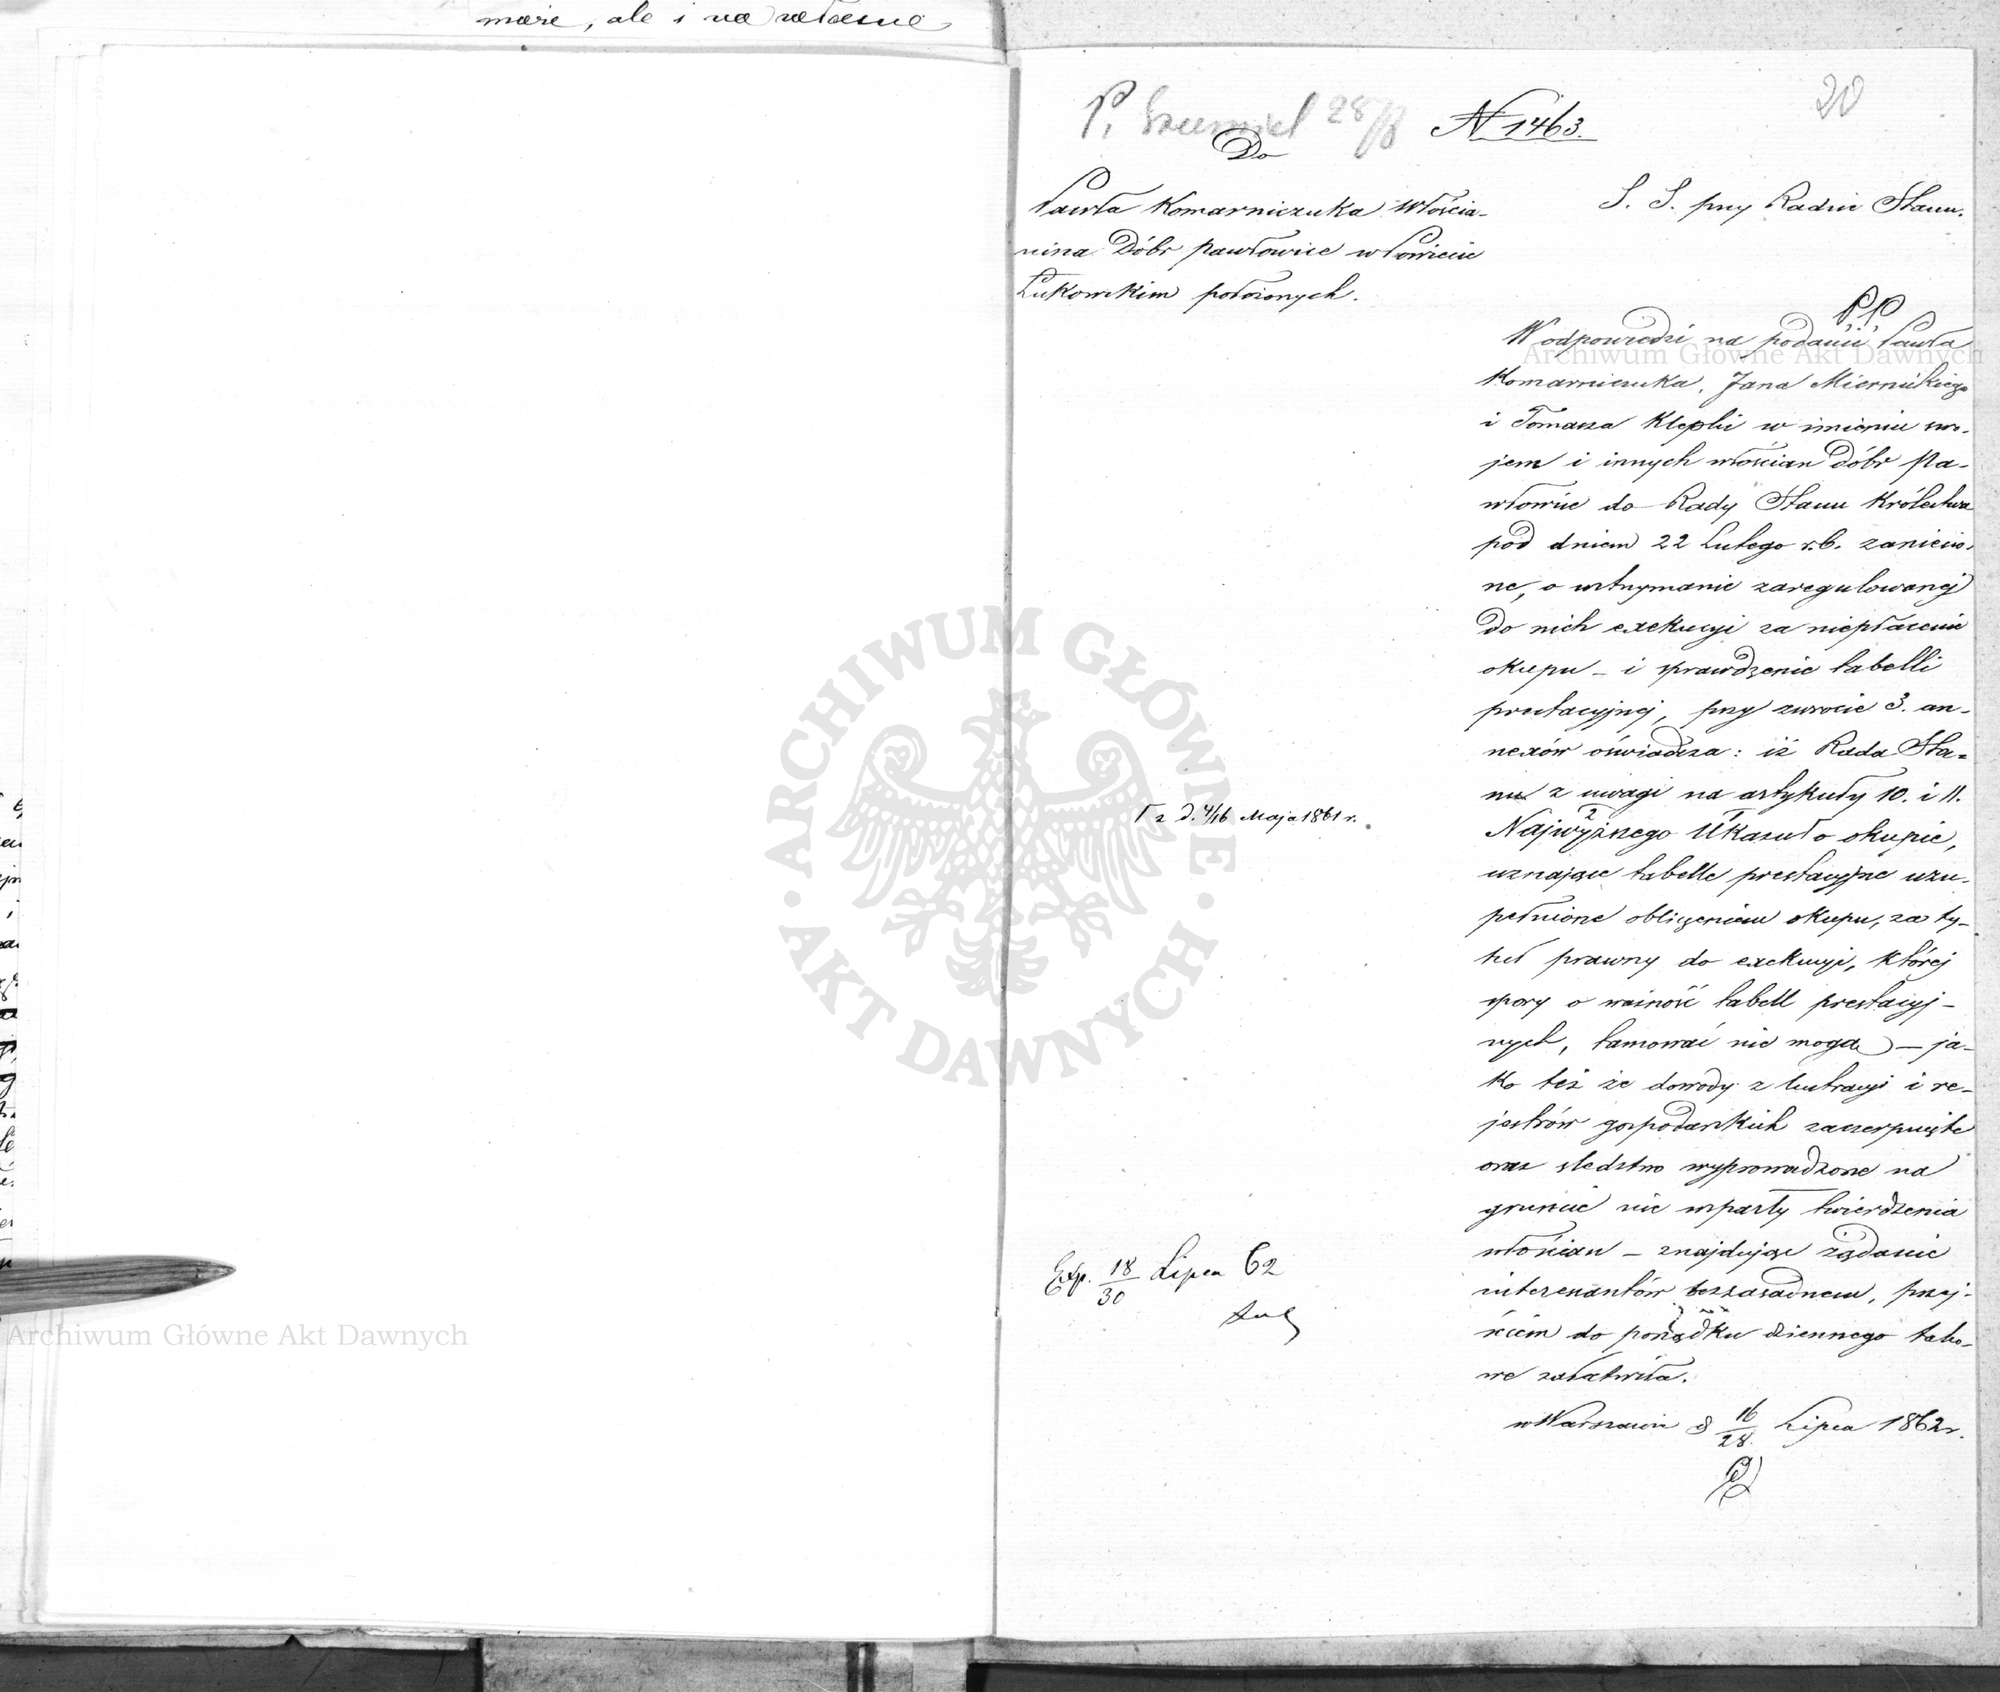 może, ale i na własne
20
P. Szumiel 28/8
N 1463.
Do
Pawła Komarniczuka Włościa-
nina Dóbr Pawłowice w Powiecie
Łukowskim położonych.
S. S. przy Radzie Stanu.
PP
W odpowiedzi na podanie Pawła
Komarniczuka, Jana Miernickiego
i Tomasza Klepki w imieniu swo-
jem i innych włościan Dóbr Pa-
włowice do Rady Stanu Królestwa
pod dniem 22 Lutego r.b. zaniesio-
ne, o wstrzymanie zaregulowanej
do nich exekucyi za niepłacenie
okupu – i sprawdzenie tabelli
prestacyjnej, przy zwrocie 3. an-
nexów oświadcza: iż Rada Sta-
nu z uwagi na artykuły 10. i 11.
Najwyższego Ukazu Γ o okupie,
uznające tabelle prestacyjne uzu-
pełnione obliczeniem okupu, za ty-
tuł prawny do exekucyi, której
spory o ważność tabell prestacyj-
nych, tamować nie mogą – ja-
ko też że dowody z lustracyi i re-
jestrów gospodarskich zaczerpnięte
oraz śledztwo wyprowadzone na
gruncie nie wsparły twierdzenia
włościan – znajdując żądanie
interesantów bezzasadnem, przej-
ściem do porządku dziennego tako-
we załatwiła.
w Warszawie d 16/28 Lipca 1862 r.
Γ z d. 4/16 Maja 1861 r.
Exp. 18/30 Lipca 62
Archiwum Główne Akt Dawnych
Archiwum Główne Akt Dawnych
ARCHIWUM GŁÓWNE
AKT DAWNYCH